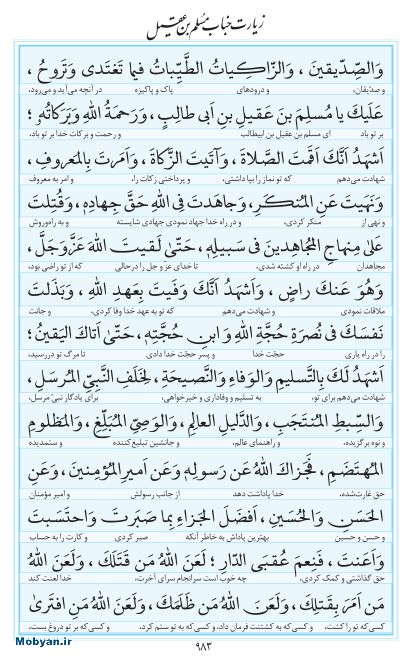 زیارت جناب مسلم بن عقیل
وَالصِّدّیقینَ ، وَالزَّاکِیاتُ الطَّیِّباتُ فیما تَغتَدی وَتَروحُ ،
و صدیقان، و درودهای پاک و پاکیزه در آنچه می‌آید و می‌رود،
عَلَیكَ یا مُسلِمَ بنَ عَقیلِ بنِ اَبی طالِبٍ ، وَرَحمَةُ اللهِ وَبَرَکاتُهُ ؛
بر تو باد ای مسلم بن عقیل بن ابیطالب و رحمت و برکات خدا بر تو باد،
اَشهَدُ اَنَّكَ اَقَمتَ الصَّلاةَ ، وَآتَیتَ الزَّکاةَ ، وَاَمَرتَ بِالمَعروفِ ،
شهادت می‌دهم که تو نماز را بپا داشتی، و پرداختی زکات را، و امر به معروف
وَنَهَیتَ عَنِ المُنکَرِ ، وَجاهَدتَ فِی اللهِ حَقَّ جِهادِهِ ، وَقُتِلتَ
و نهی از منکر کردی، و در راه خدا جهاد نمودی جهادی شایسته و به راه‌وروش
عَلیٰ مِنهاجِ المُجاهِدینَ فی سَبیلِهِ ، حَتّیٰ لَقیتَ اللهَ عَزَّوَجَلَّ ،
مجاهدان در راه او کشته شدی، تا خدای عز و جل را درحالی که از تو راضی بود،
وَهُوَ عَنكَ راضٍ ، وَاَشهَدُ اَنَّكَ وَفَیتَ بِعَهدِ اللهِ ، وَبَذَلتَ
ملاقات نمودی و شهادت می‌دهم که تو به عهد خدا وفا کردی، و جانت
نَفسَكَ فی نُصرَةِ حُجَّةِ اللهِ وَابنِ حُجَّتِهِ ، حَتّیٰ اَتاكَ الیَقینُ ؛
را در راه یاری حجت خدا و پسر حجت خدا دادی تا مرگ تو دررسید،
اَشهَدُ لَكَ بِالتَّسلیمِ وَالوَفاءِ وَالنَّصیحَةِ ، لِخَلَفِ النَّبِیِّ المُرسَلِ ،
شهادت می‌دهم برای تو، به تسلیم و وفاداری و خیرخواهی، برای یادگار نبی مرسل،
وَالسِّبطِ المُنتَجَبِ ، وَالدَّلیلِ العالِمِ ، وَالوَصِیِّ المُبَلِّغِ ، وَالمَظلومِ
و نوه برگزیده، و راهنمای عالم، و جانشین تبلیغ‌کننده و ستمدیده
المُهتَضَمِ ، فَجَزاكَ اللهُ عَن رَسولِهِ وَعَن اَمیرِ المُؤمِنینَ ، وَعَنِ
حق غارت‌شده، خدا پاداشت دهد از جانب رسولش و امیر مؤمنان
الحَسَنِ وَالحُسَینِ ، اَفضَلَ الجَزاءِ بِما صَبَرتَ وَاحتَسَبتَ
و حسن و حسین بهترین پاداش به خاطر آنکه صبر کردی و کارت را به حساب
وَاَعَنتَ ، فَنِعمَ عُقبَی الدّارِ ؛ لَعَنَ اللهُ مَن قَتَلَكَ ، وَلَعَنَ اللهُ
حق گذاشتی و کمک کردی، چه خوب است سرانجام سرای آخرت، خدا لعنت کند
مَن اَمَرَ بِقَتلِكَ ، وَلَعَنَ اللهُ مَن ظَلَمَكَ ، وَلَعَنَ اللهُ مَنِ افتَریٰ
کسی که تو را کشت، و کسی‌که به کشتنت فرمان داد، و کسی‌که به تو ستم کرد، و کسی‌که بر تو دروغ بست،
۹۸۳
Mobyan.ir